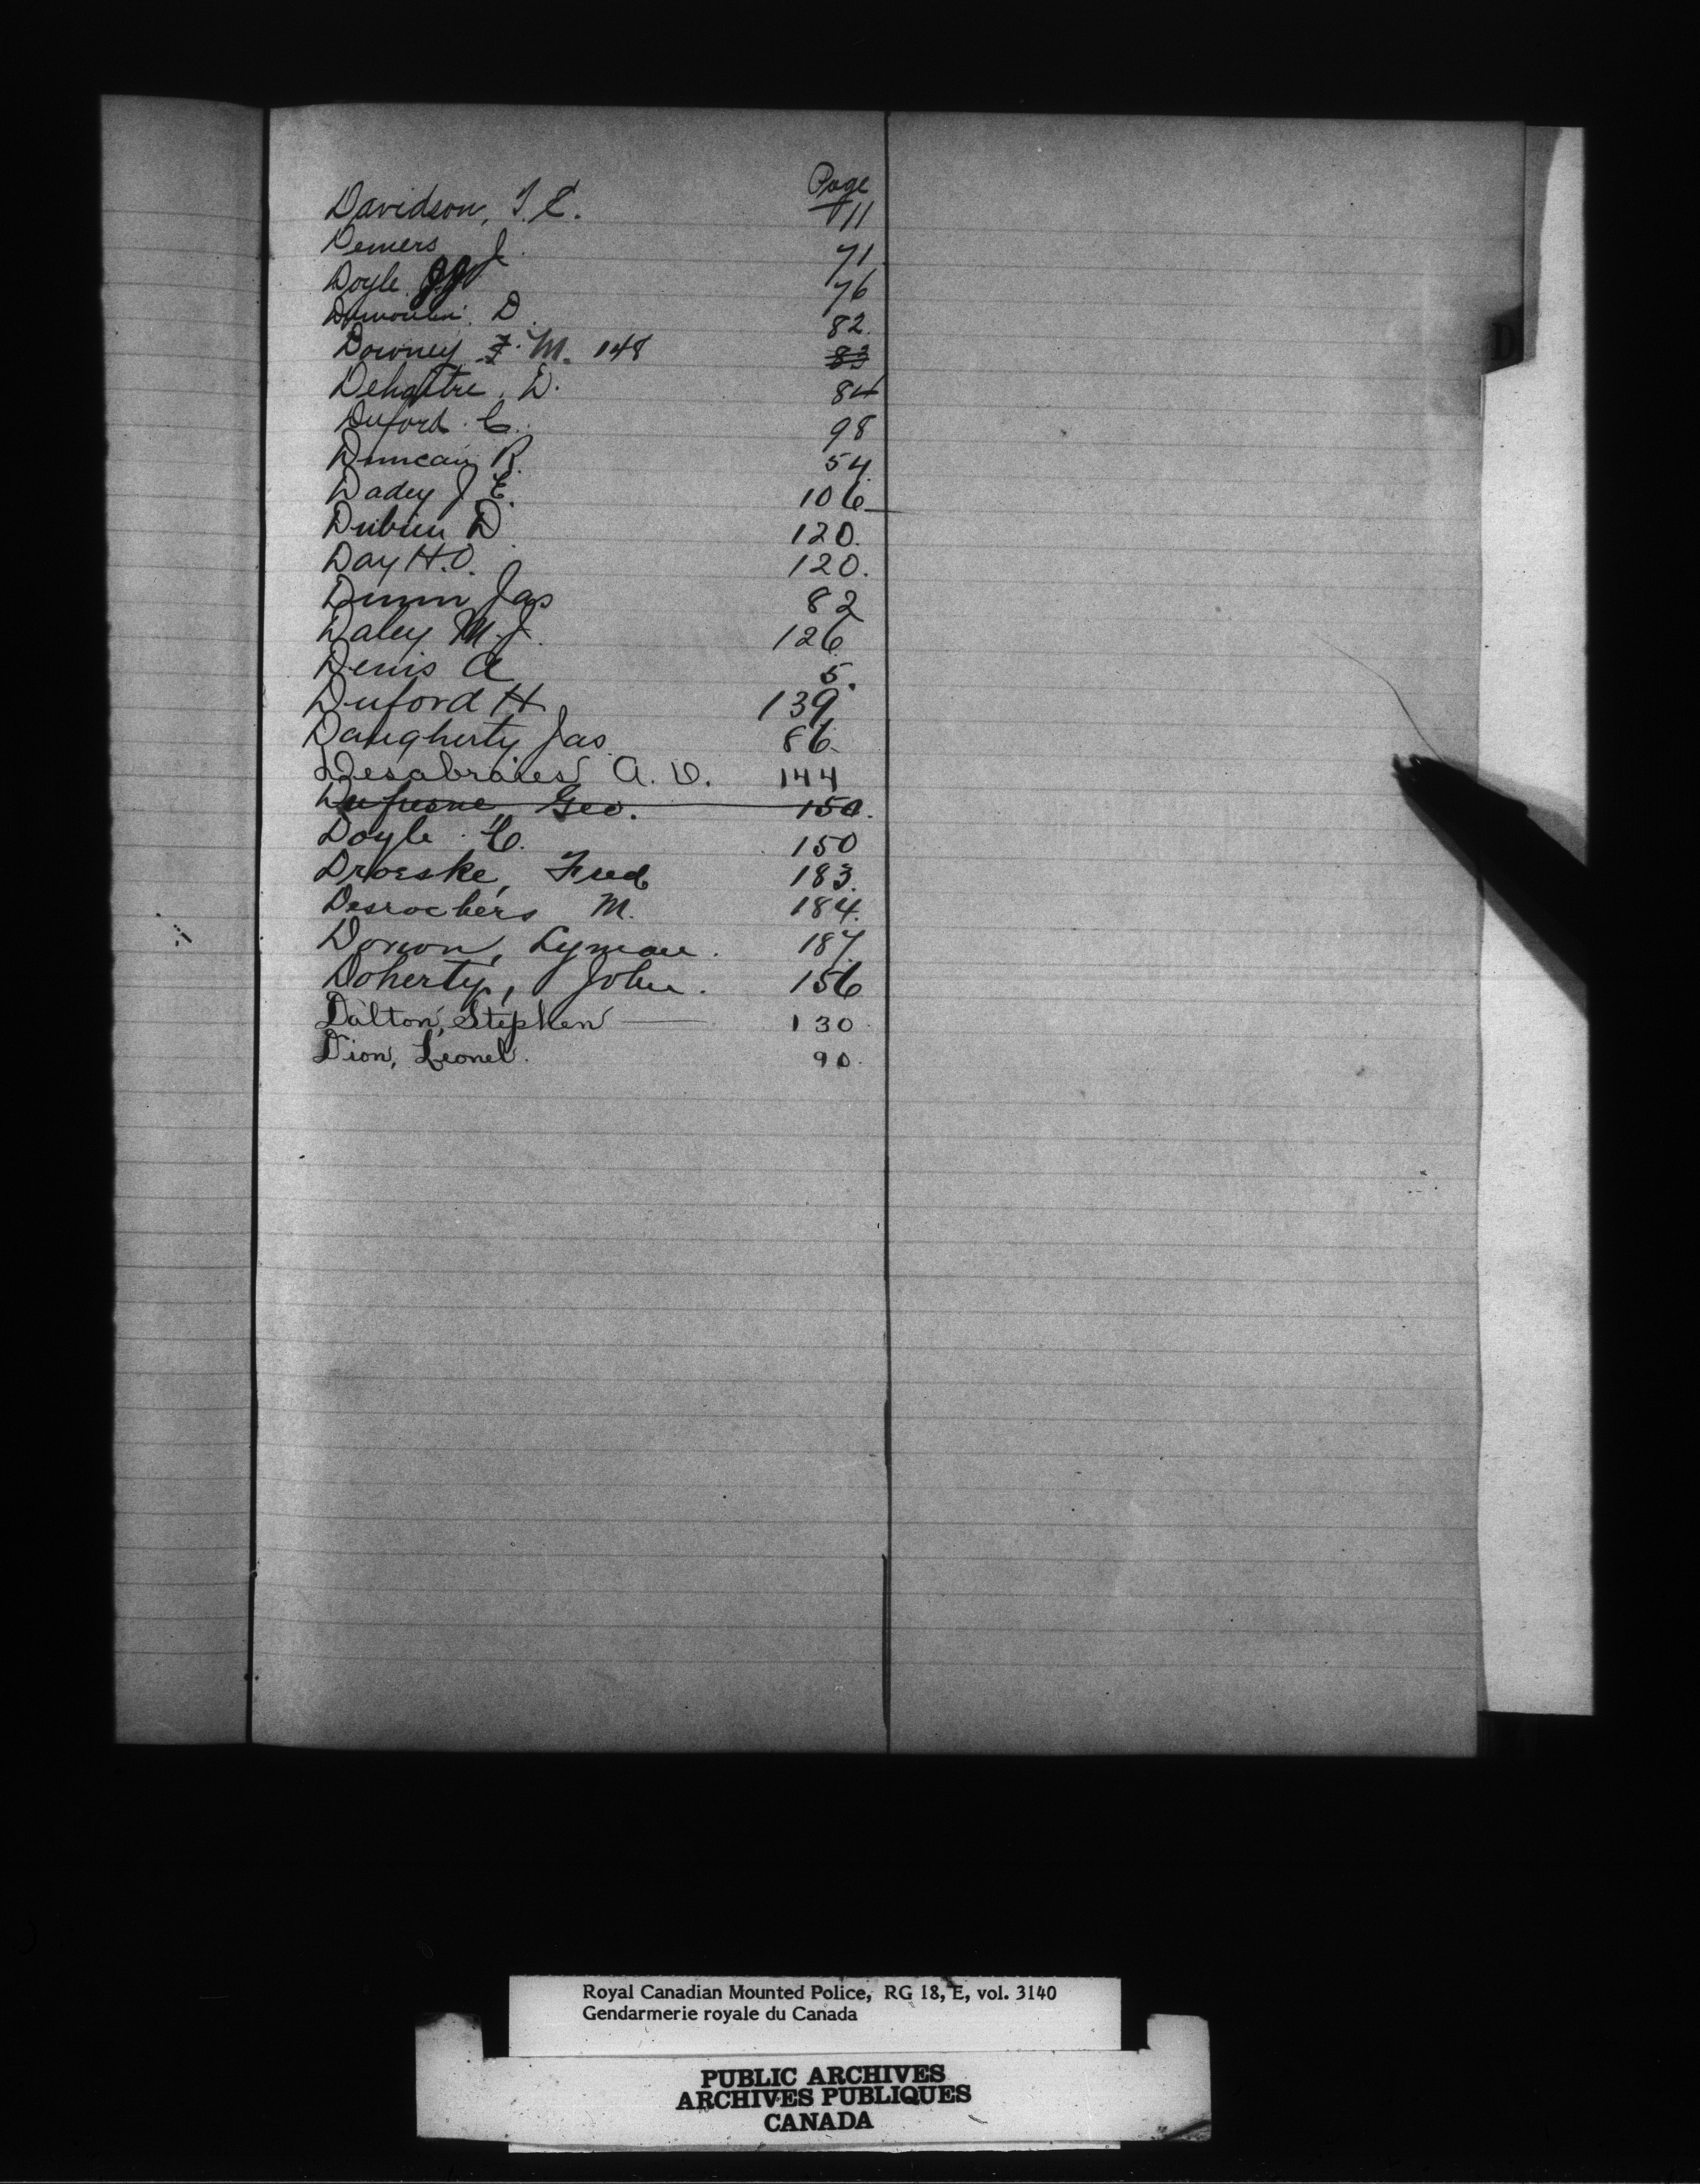 Page
Davidson, T. E. 11
Demers J. 71.
Doyle JJ 76
Dumoulin. D. 82.
Downey F. M. 148 83
Dehaitre, D. 84
Duford C. 98
Duncan R. 54.
Dadey J E. 106
Dubien D. 120.
Day H.O. 120.
Dunn Jas 82
Daley M. J. 126.
Denis A 5.
Duford H 139
Daugherty Jas. 86.
Desabraies A. D. 144
Dufresne, Geo. 150.
Doyle C. 150
Droeske, Fred 183.
Desrochers M. 184.
Doxon, Lyman. 187.
Doherty, John. 156
Dalton, Stephen 130.
Dion, Leonel. 90.
D
Royal Canadian Mounted Police, RG 18, E, vol. 3140
Gendarmerie royale du Canada
PUBLIC ARCHIVES
ARCHIVES PUBLIQUES
CANADA